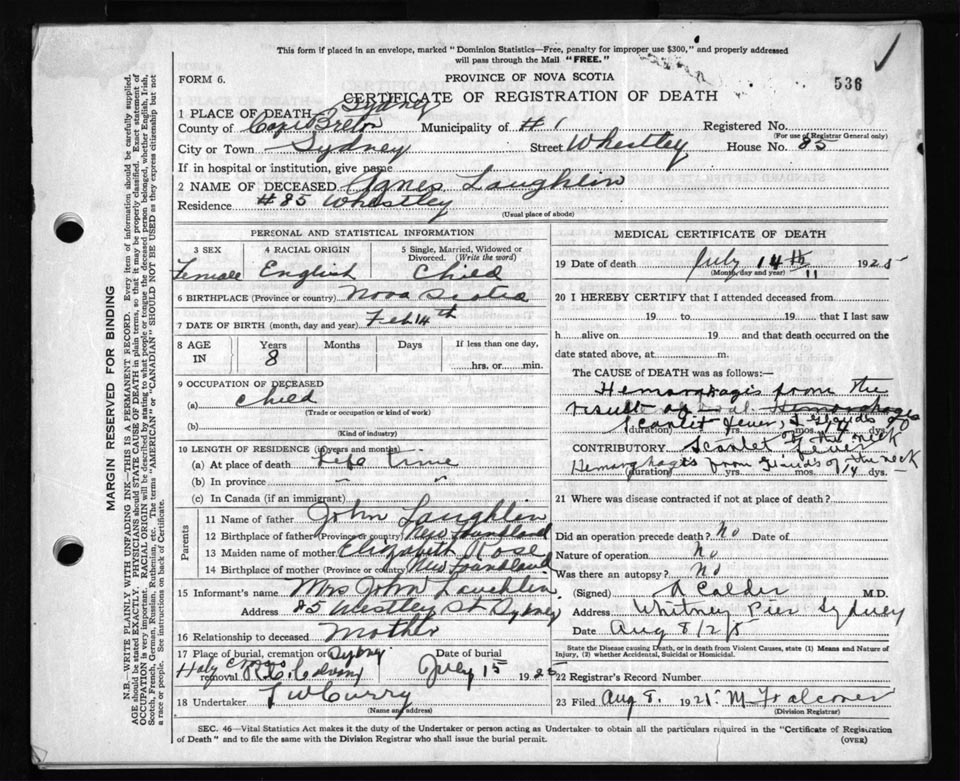 This form if placed in an envelope, marked "Dominion Statistics—Free, penalty for improper use $300," and properly addressed
will pass through the Mail "FREE."
FORM 6.
PROVINCE OF NOVA SCOTIA
536
CERTIFICATE OF REGISTRATION OF DEATH
1 PLACE OF DEATH Sydney
County of Cape Breton Municipality of #1 Registered No.
(For use of Registrar General only)
City or Town Sydney Street Whestley House No. 85
If in hospital or institution, give name
2 NAME OF DECEASED Agnes Laughlin
Residence #85 Whestley
(Usual place of abode)
PERSONAL AND STATISTICAL INFORMATION
3 SEX 4 RACIAL ORIGIN 5 Single, Married, Widowed or Divorced. (Write the word)
Female English Child
6 BIRTHPLACE (Province or country) Nova Scotia
7 DATE OF BIRTH (month, day and year) Feb 14th
8 AGE IN Years Months Days If less than one day,
8 hrs. or min.
9 OCCUPATION OF DECEASED
(a) Child
(Trade or occupation or kind of work)
(b)
(Kind of industry)
10 LENGTH OF RESIDENCE (in years and months)
(a) At place of death Life time
(b) In province " "
(c) In Canada (if an immigrant)
Parents
11 Name of father John Laughlin
12 Birthplace of father (Province or country) Newfoundland
13 Maiden name of mother Elizabeth Rose
14 Birthplace of mother (Province or country) New Foundland
15 Informant's name Mrs John Laughlin
Address 85 Westley St Sydney
16 Relationship to deceased Mother
17 Place of burial, cremation or removal Sydney Date of burial
Holy Cross R.C. July 15 1925
18 Undertaker Curry
(Name and address)
MEDICAL CERTIFICATE OF DEATH
19 Date of death July 14th 1925
(Month, day and year) 11
20 I HEREBY CERTIFY that I attended deceased from
19 to 19 that I last saw
h alive on 19 and that death occurred on the
date stated above, at m.
The CAUSE of DEATH was as follows:—
Hemorrhagis from the
result of Hemorrhagis
Scarlet fever, & glands of
(duration) yrs. mos. 14 ds.
the neck
CONTRIBUTORY Scarlet fever
Hemorrhagis from Glands of the neck
(duration) yrs. mos. 14 dys.
21 Where was disease contracted if not at place of death?
Did an operation precede death? No Date of
Nature of operation No
Was there an autopsy? No
(Signed) A Calder M.D.
Address Whitney Pier Sydney
Date Aug 8/25
State the Disease causing Death, or in death from Violent Causes, state (1) Means and Nature of
Injury, (2) whether Accidental, Suicidal or Homicidal.
22 Registrar's Record Number
23 Filed Aug 8. 1925 M Falconer
(Division Registrar)
SEC. 46—Vital Statistics Act makes it the duty of the Undertaker or person acting as Undertaker to obtain all the particulars required in the "Certificate of Registration
of Death" and to file the same with the Division Registrar who shall issue the burial permit. (OVER)
MARGIN RESERVED FOR BINDING
N.B.—WRITE PLAINLY WITH UNFADING INK—THIS IS A PERMANENT RECORD. Every item of information should be carefully supplied.
AGE should be stated EXACTLY. PHYSICIANS should STATE CAUSE OF DEATH in plain terms, so that it may be properly classified. Exact statement of
OCCUPATION is very important. RACIAL ORIGIN will be described by stating to what people or tongue the deceased person belonged, whether English, Irish,
Scotch, French, German, Russian, Ruthenian, etc. The terms "AMERICAN" or "CANADIAN" SHOULD NOT BE USED as they express citizenship but not
a race or people. See instructions on back of Certificate.